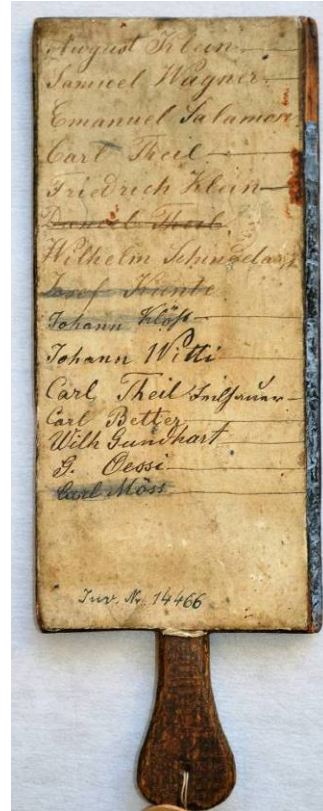 August Klein
Samuel Wagner
Emanuel Salamon
Carl Theil
Friedrich Klein
Daniel Theil
Wilhelm
Josef Kuente
Johann Klöß
Johann Witti
Carl Theil Feilhauer
Carl Better
Wilh Gundhart
G. Oessi
Carl Möss
Inv. Nr. 14466